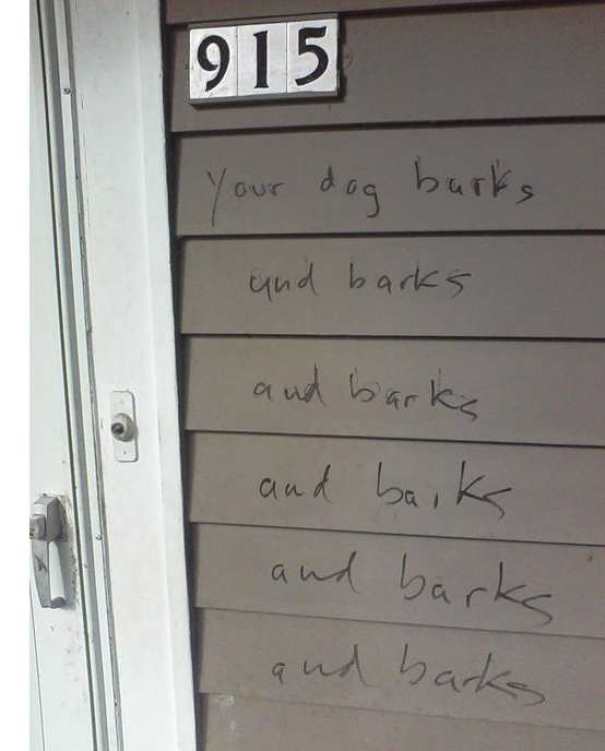 915
Your dog barks
and barks
and barks
and barks
and barks
and barks